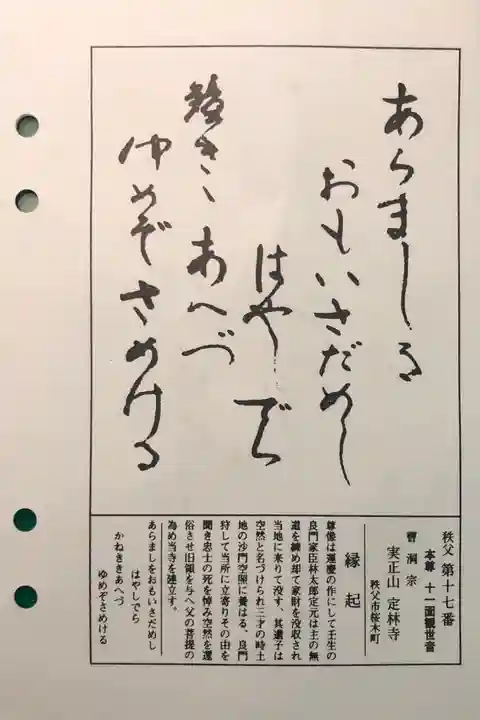 あらましを
おもいさだめし
はやしでら
鐘きゝあへづ
ゆめぞさめける
秩父 第十七番
本尊 十一面観世音
曹洞宗
実正山 定林寺
秩父市桜木町
縁起
尊像は運慶の作にして壬生の
良門家臣林太郎定元は主の無
道を諫め却て家財を没収され
当地に来りて没す、其遺子は
空然と名づけられ三才の時土
地の沙門空照に養はる、良門
狩して当所に立寄りその由を
聞き忠士の死を悼み空然を還
俗させ旧領を与へ父の菩提の
為め当寺を建立す。
あらましをおもいさだめし
はやしでら
かねききあへづ
ゆめぞさめける